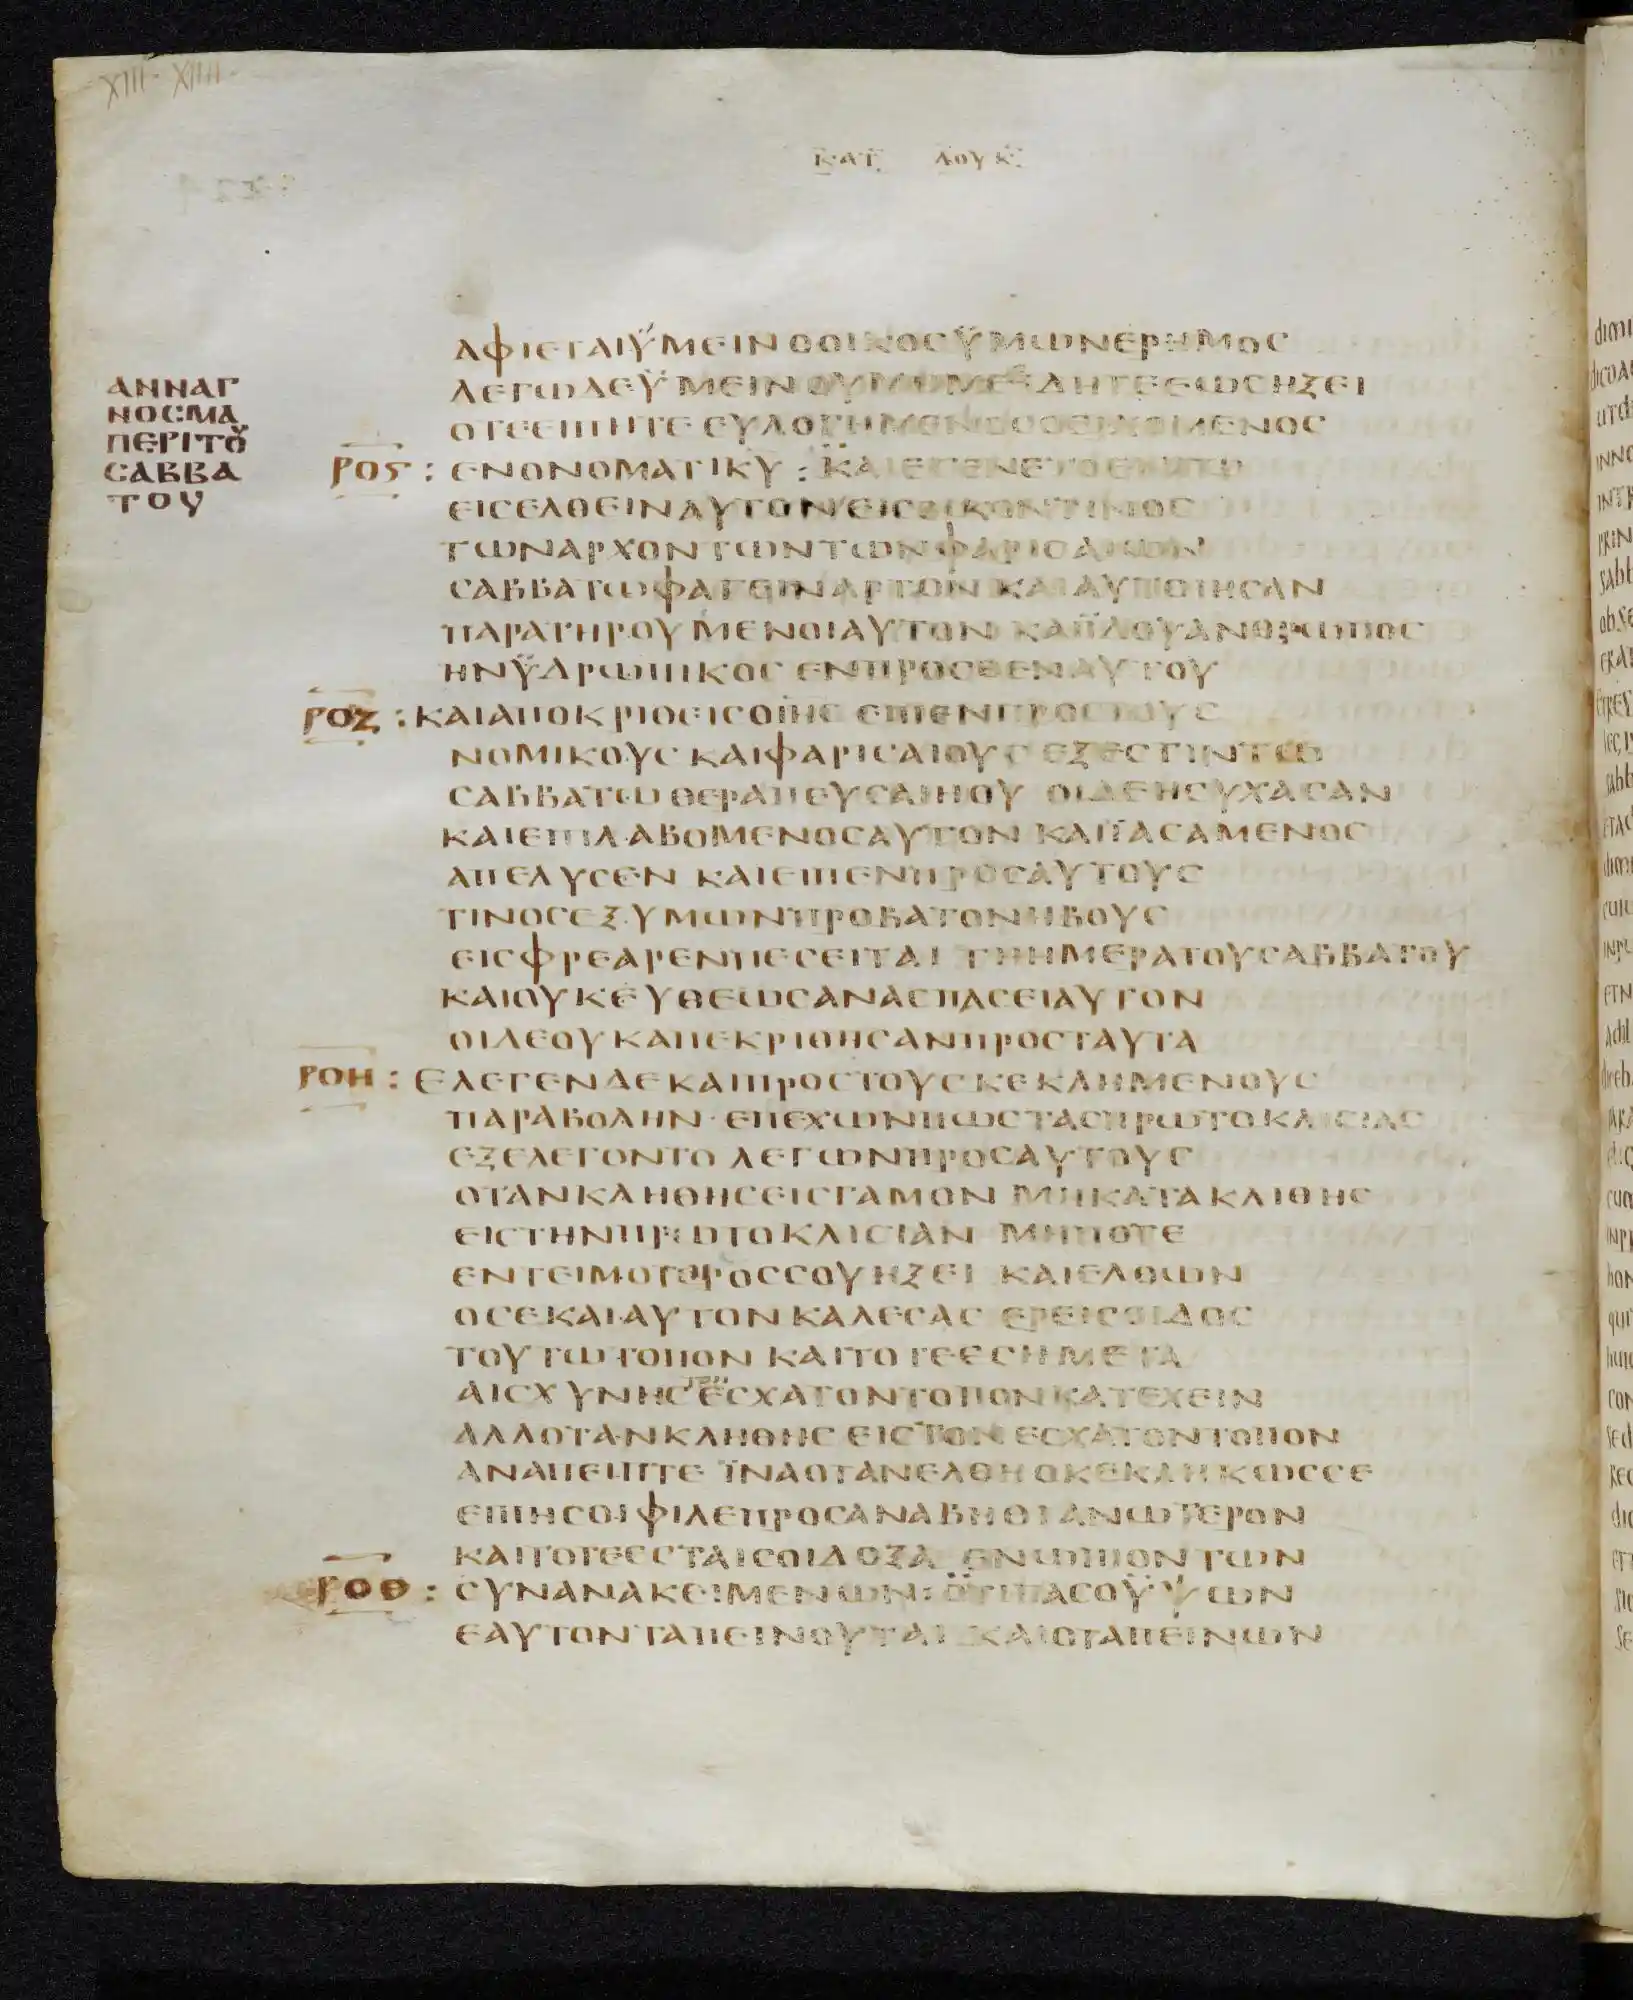 XIII · XIIII ·
ΚΑΤ ΛΟΥΚ
ΑΝΝΑΓ
ΝΟϹΜΑ
ΠΕΡΙΤΟΥ
ϹΑΒΒΑ
ΤΟΥ
ΑΦΙΕΤΑΙΫΜΕΙΝ ΟΟΙΚΟϹΫΜΩΝΕΡΗΜΟϹ
ΛΕΓΩΔΕΫΜΕΙΝ ΟΥΜΗΜΕΙΔΗΤΕΕΩϹΗΞΕΙ
ΟΤΕΕΙΠΗΤΕ ΕΥΛΟΓΗΜΕΝΟϹΟΕΡΧΟΜΕΝΟϹ
ΡΟϚ : ΕΝΟΝΟΜΑΤΙΚΥ : ΚΑΙΕΓΕΝΕΤΟΕΝΤΩ
ΕΙϹΕΛΘΕΙΝΑΥΤΟΝ ΕΙϹΟΙΚΟΝΤΙΝΟϹ
ΤΩΝΑΡΧΟΝΤΩΝΤΩΝΦΑΡΙϹΑΙΩΝ
ϹΑΒΒΑΤΩΦΑΓΕΙΝΑΡΤΟΝ ΚΑΙΑΥΤΟΙΗϹΑΝ
ΠΑΡΑΤΗΡΟΥΜΕΝΟΙΑΥΤΟΝ ΚΑΙΪΔΟΥΑΝΘΡΩΠΟϹ
ΗΝΫΔΡΩΠΙΚΟϹ ΕΝΠΡΟϹΘΕΝΑΥΤΟΥ
ΡΟΖ : ΚΑΙΑΠΟΚΡΙΘΕΙϹΟΙΗϹ ΕΙΠΕΝΠΡΟϹΤΟΥϹ
ΝΟΜΙΚΟΥϹ ΚΑΙΦΑΡΙϹΑΙΟΥϹ ΕΞΕϹΤΙΝΤΩ
ϹΑΒΒΑΤΩ ΘΕΡΑΠΕΥϹΑΙΗΟΥ ΟΙΔΕΗϹΥΧΑϹΑΝ
ΚΑΙΕΠΙΛΑΒΟΜΕΝΟϹΑΥΤΟΝ ΚΑΙΪΑϹΑΜΕΝΟϹ
ΑΠΕΛΥϹΕΝ ΚΑΙΕΙΠΕΝΠΡΟϹΑΥΤΟΥϹ
ΤΙΝΟϹΕΞΥΜΩΝΠΡΟΒΑΤΟΝΗΒΟΥϹ
ΕΙϹΦΡΕΑΡΕΝΠΕϹΕΙΤΑΙ ΤΗΗΜΕΡΑΤΟΥϹΑΒΒΑΤΟΥ
ΚΑΙΟΥΚΕΥΘΕΩϹΑΝΑϹΠΑϹΕΙΑΥΤΟΝ
ΟΙΔΕΟΥΚΑΠΕΚΡΙΘΗϹΑΝΠΡΟϹΤΑΥΤΑ
ΡΟΗ : ΕΛΕΓΕΝΔΕΚΑΙΠΡΟϹΤΟΥϹΚΕΚΛΗΜΕΝΟΥϹ
ΠΑΡΑΒΟΛΗΝ · ΕΠΕΧΩΝΠΩϹΤΑϹΠΡΩΤΟΚΛΙϹΙΑϹ
ΕΞΕΛΕΓΟΝΤΟ ΛΕΓΩΝΠΡΟϹΑΥΤΟΥϹ
ΟΤΑΝΚΛΗΘΗϹΕΙϹΓΑΜΟΝ ΜΗΚΑΤΑΚΛΙΘΗϹ
ΕΙϹΤΗΝΠΡΩΤΟΚΛΙϹΙΑΝ ΜΗΠΟΤΕ
ΕΝΤΕΙΜΟΤΕΡΟϹϹΟΥΗΞΕΙ ΚΑΙΕΛΘΩΝ
ΟϹΕΚΑΙΑΥΤΟΝΚΑΛΕϹΑϹ ΕΡΕΙϹΟΙΔΟϹ
ΤΟΥΤΩΤΟΠΟΝ ΚΑΙΤΟΤΕΕϹΗΜΕΤΑ
ΑΙϹΧΥΝΗϹΕϹΧΑΤΟΝΤΟΠΟΝΚΑΤΕΧΕΙΝ
ΑΛΛΟΤΑΝΚΛΗΘΗϹ ΕΙϹΤΟΝΕϹΧΑΤΟΝΤΟΠΟΝ
ΑΝΑΠΕΙΠΤΕ ΪΝΑΟΤΑΝΕΛΘΗΟΚΕΚΛΗΚΩϹϹΕ
ΕΙΠΗϹΟΙΦΙΛΕΠΡΟϹΑΝΑΒΗΘΙΑΝΩΤΕΡΟΝ
ΚΑΙΤΟΤΕΕϹΤΑΙϹΟΙΔΟΞΑ ΕΝΩΠΙΟΝΤΩΝ
ΡΟΘ : ϹΥΝΑΝΑΚΕΙΜΕΝΩΝ : ΟΤΙΠΑϹΟΫΨΩΝ
ΕΑΥΤΟΝΤΑΠΕΙΝΟΥΤΑΙ ΚΑΙΟΤΑΠΕΙΝΩΝ